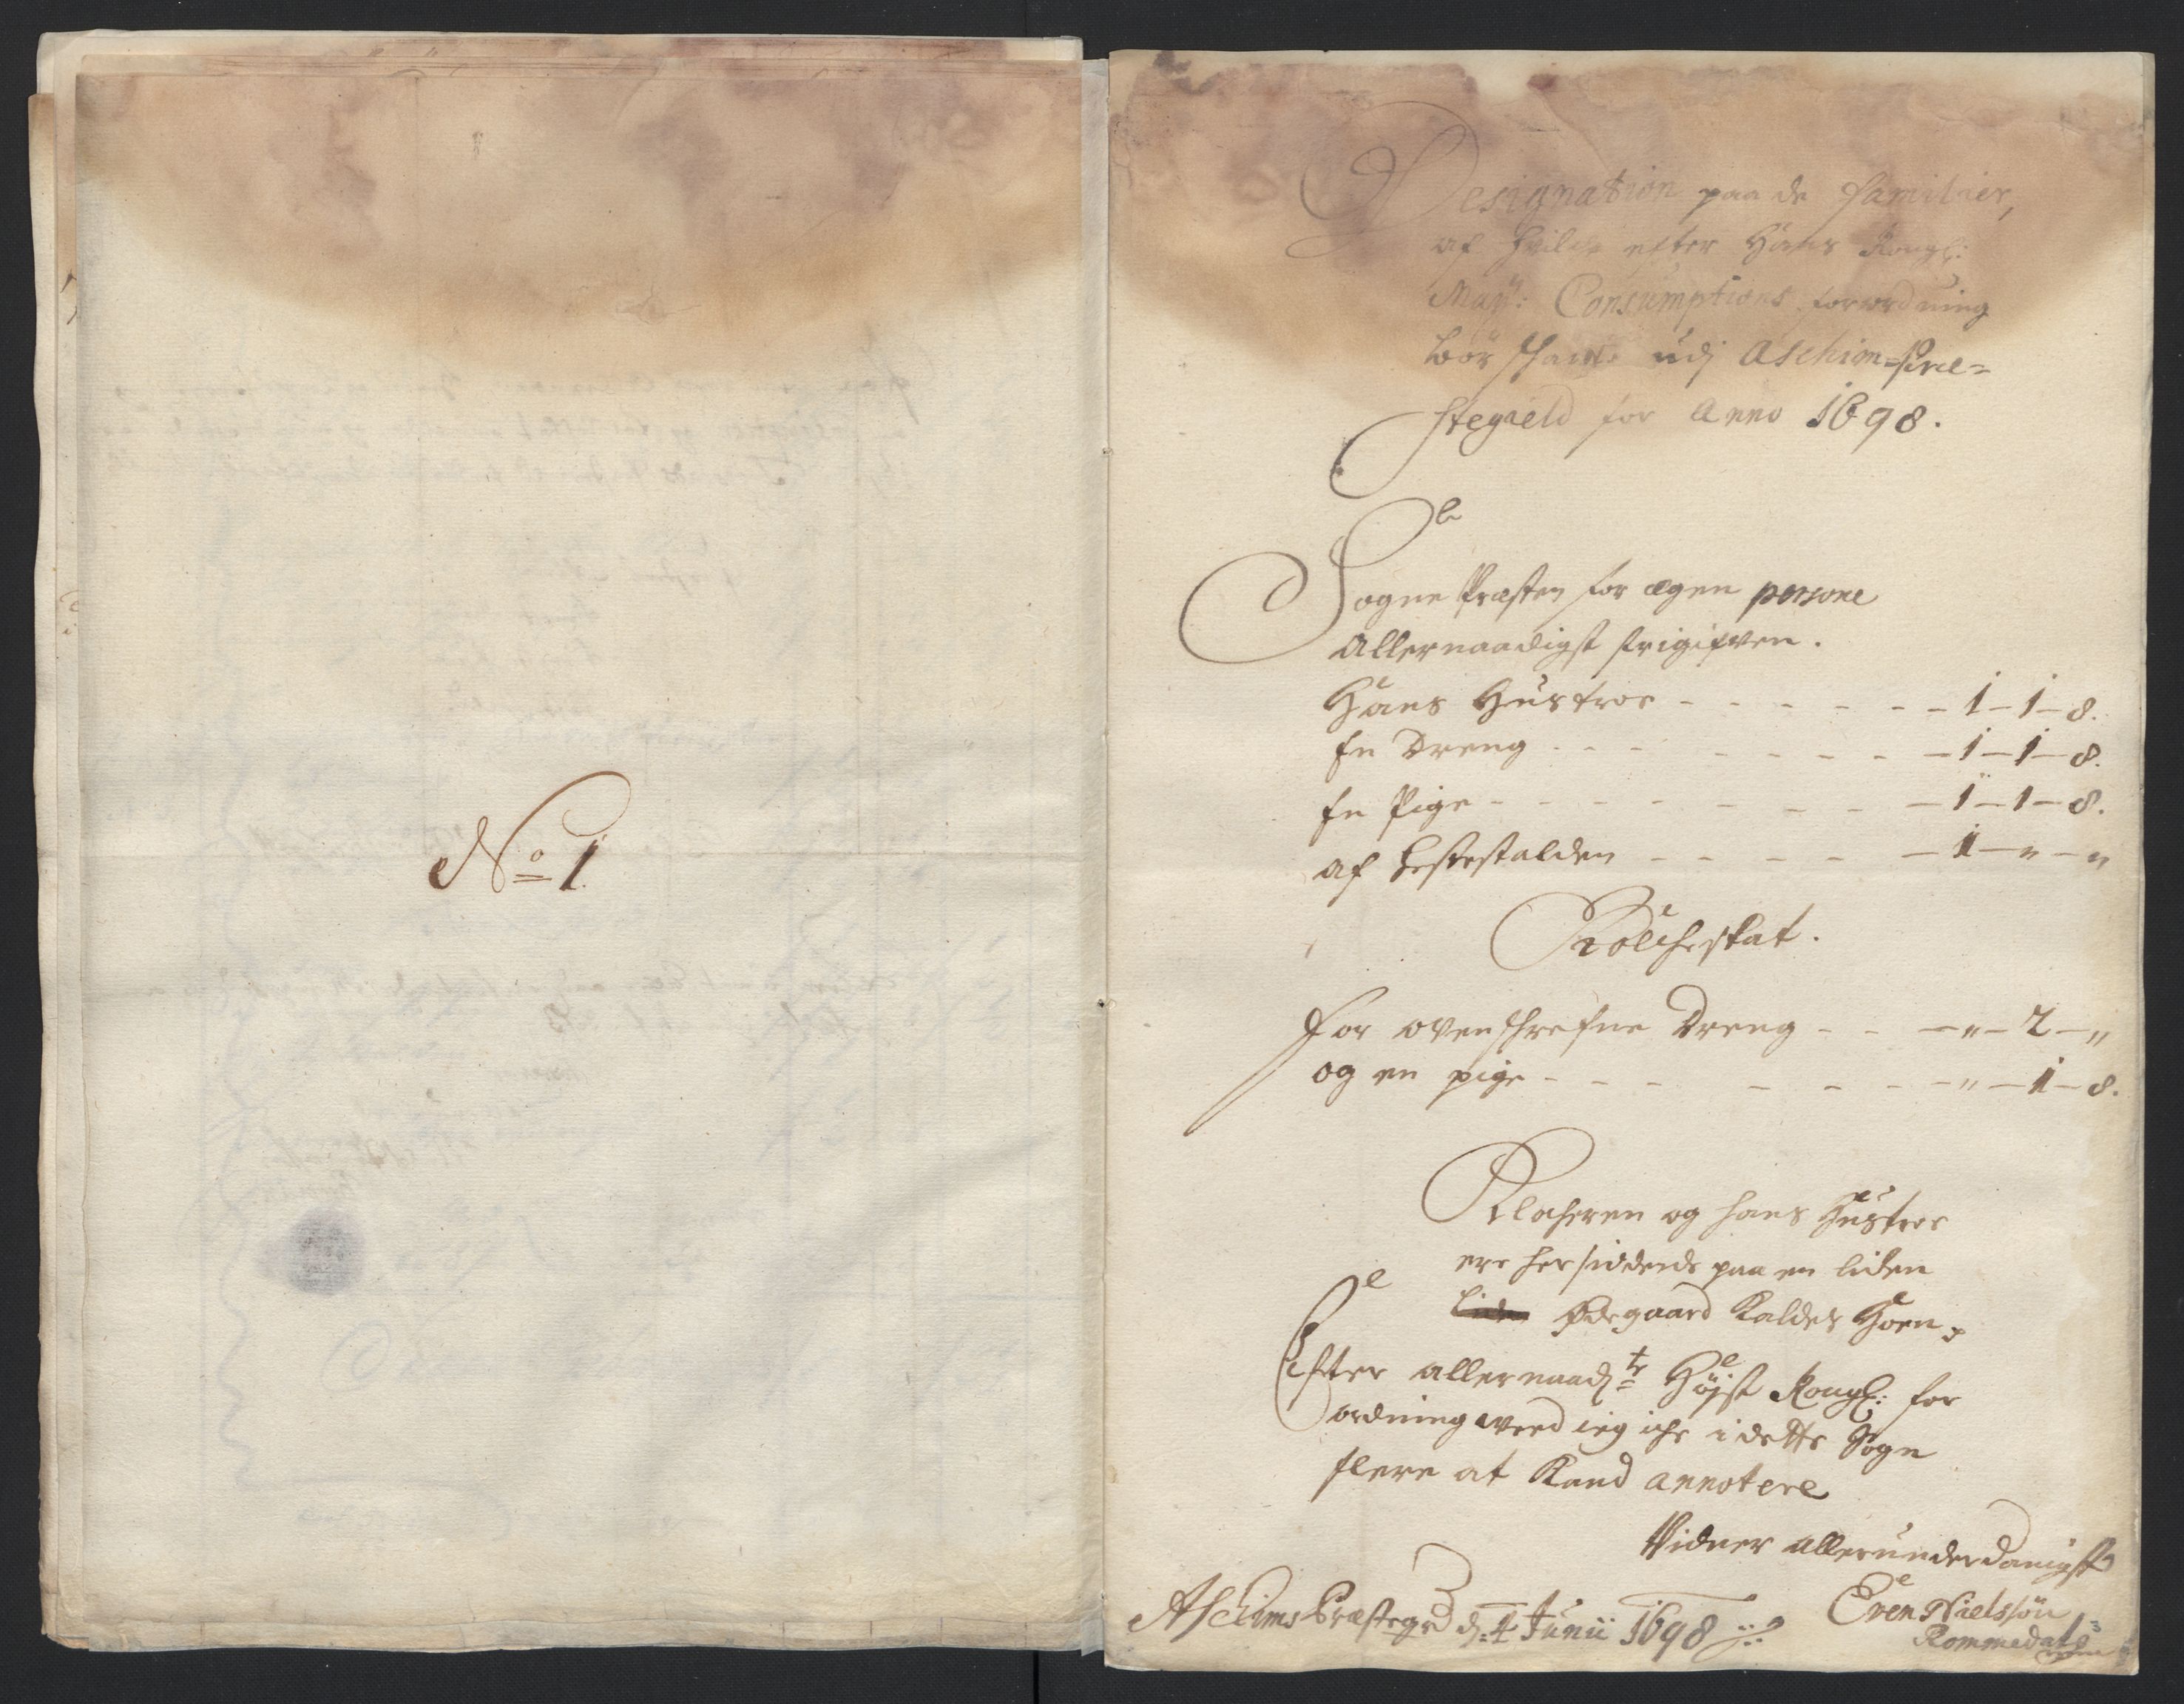 No 1.
Designation paa de familier,
af hvilke efter Hans Kongl:
May:ts Consumptions forordning
bör schatte udj Aschim-Præ-
stegield for Anno 1698.
Sogne Præsten for egen persone
Allernaadigst frigifven.
Hans Hustroe - - - - - - 1 - 1 - 8.
En Dreng - - - - - - - 1 - 1 - 8.
En Pige - - - - - - - 1 - 1 - 8.
af Hestestalden - - - - - 1 - " - "
Folcheskat.
For ovenschrefne Dreng - - - " - 2 - "
og en pige - - - - - - " - 1 - 8.
Klocheren og hans Hustroe
ere her siddende paa en liden
Ødegaard kaldes Hoen,
Efter allernaad:te Høyst Kongl: for
ordning veed ieg iche i dette Sogn
flere at kand annotere
Vidner allerunderdanigst
Aschims Præstegrd d: 4 Junii 1698
Even Nielssøn